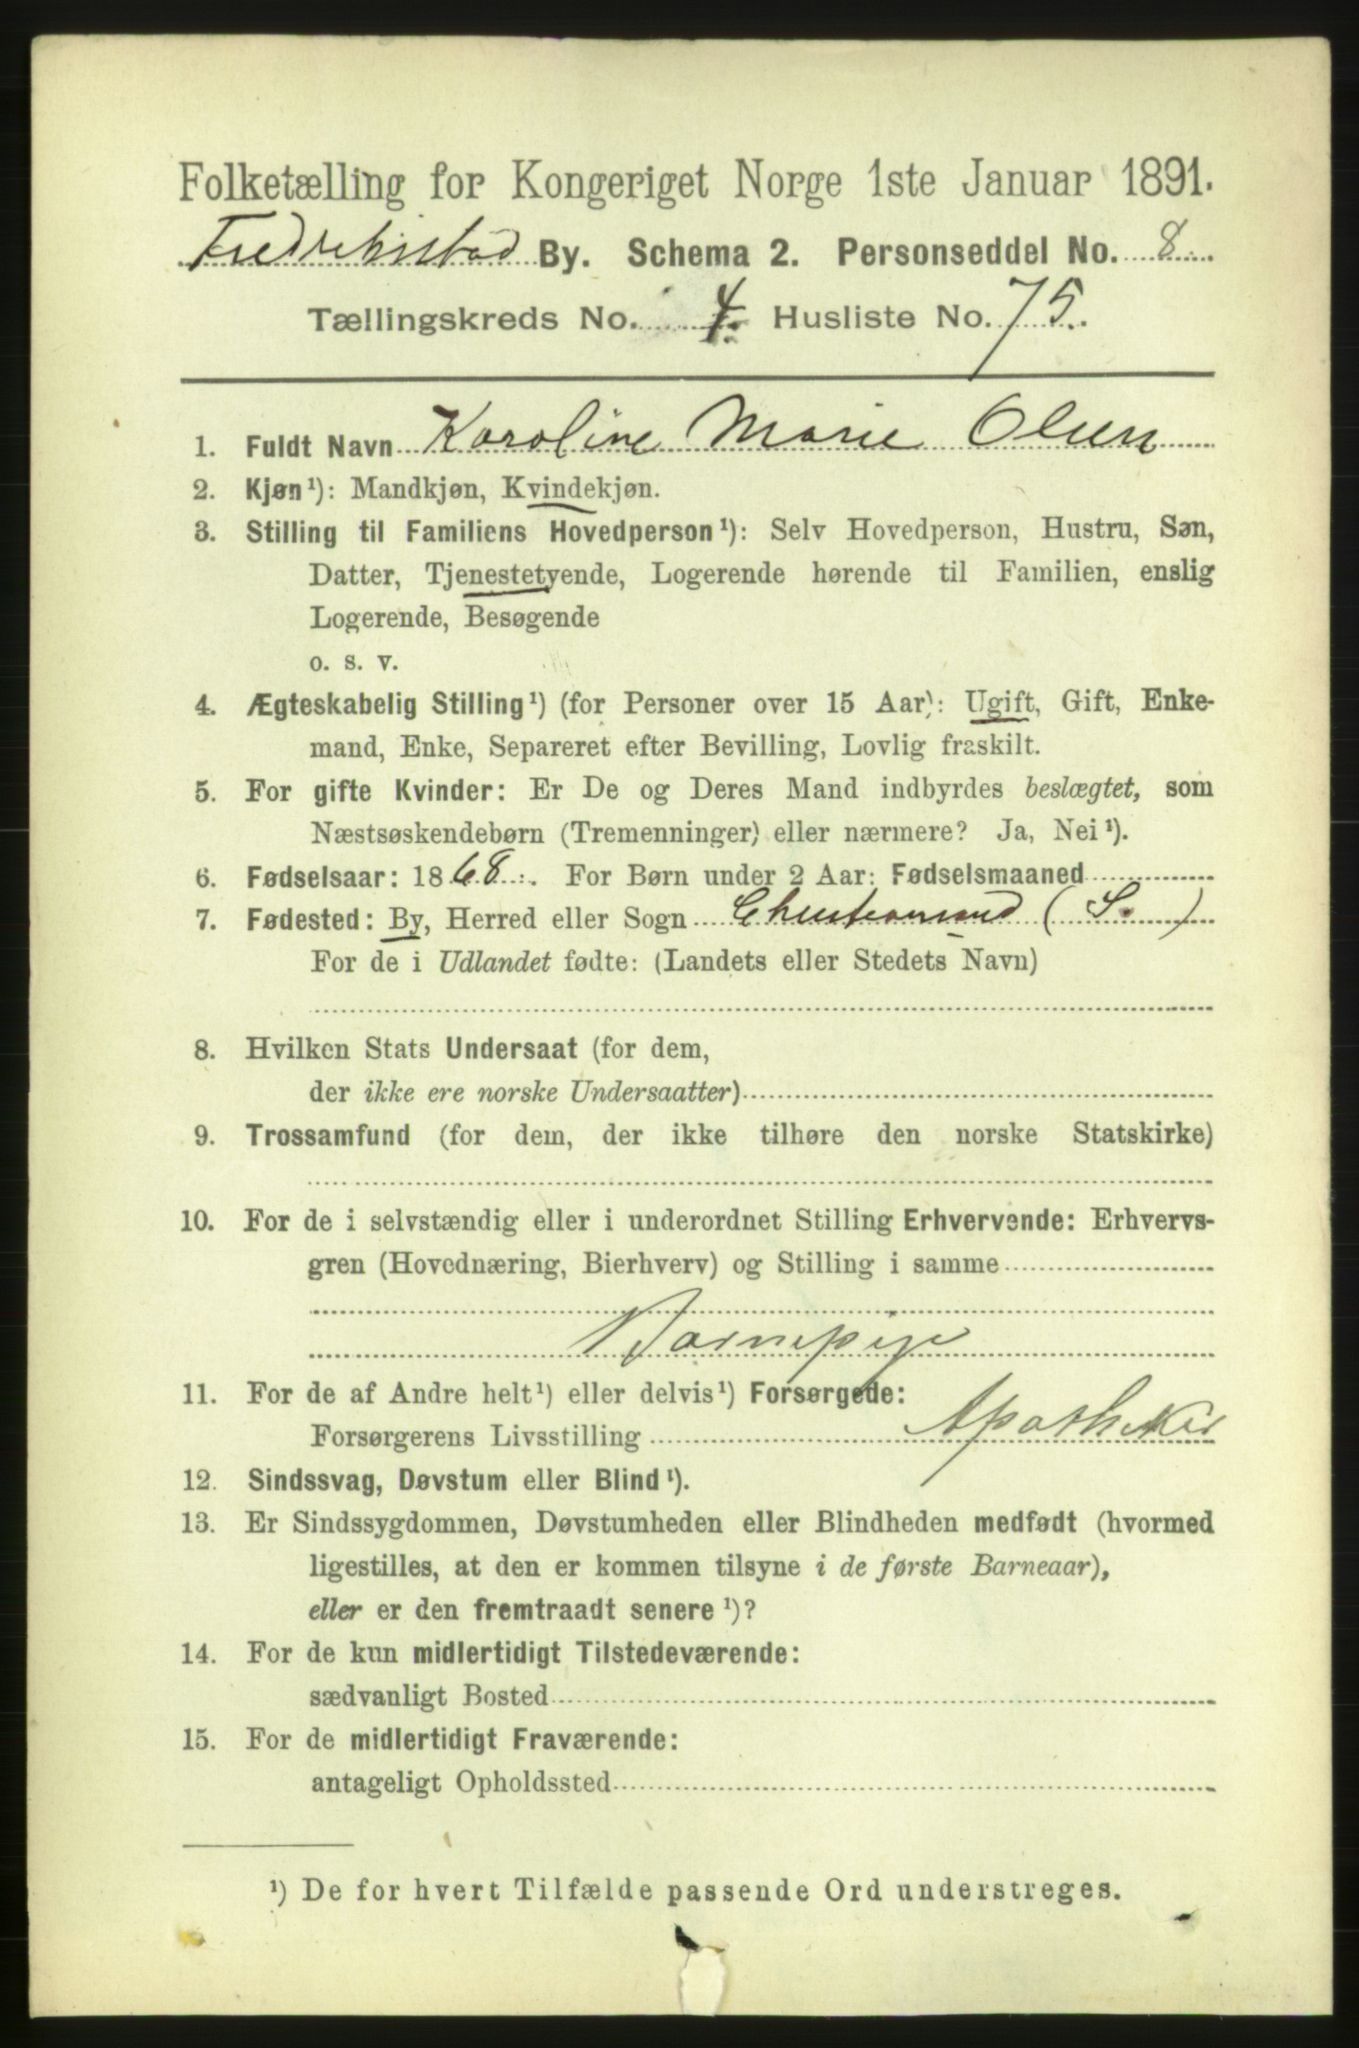 Folketælling for Kongeriget Norge 1ste Januar 1891.
Fredrikstad By. Schema 2. Personseddel No. 8.
Tællingskreds No. 4. Husliste No. 75.
1. Fuldt Navn Karoline Marie Olsen
2. Kjøn¹): Mandkjøn, Kvindekjøn.
3. Stilling til Familiens Hovedperson¹): Selv Hovedperson, Hustru, Søn,
Datter, Tjenestetyende, Logerende hørende til Familien, enslig
Logerende, Besøgende
o. s. v.
4. Ægteskabelig Stilling¹) (for Personer over 15 Aar): Ugift, Gift, Enke-
mand, Enke, Separeret efter Bevilling, Lovlig fraskilt.
5. For gifte Kvinder: Er De og Deres Mand indbyrdes beslægtet, som
Næstsøskendebørn (Tremenninger) eller nærmere? Ja, Nei¹).
6. Fødselsaar: 1868. For Børn under 2 Aar: Fødselsmaaned
7. Fødested: By, Herred eller Sogn Christiansand (S.)
For de i Udlandet fødte: (Landets eller Stedets Navn)
8. Hvilken Stats Undersaat (for dem,
der ikke ere norske Undersaatter)
9. Trossamfund (for dem, der ikke tilhøre den norske Statskirke)
10. For de i selvstændig eller i underordnet Stilling Erhvervende: Erhvervs-
gren (Hovednæring, Bierhverv) og Stilling i samme
Barnepige
11. For de af Andre helt¹) eller delvis¹) Forsørgede:
Forsørgerens Livsstilling Apotheker
12. Sindssvag, Døvstum eller Blind¹).
13. Er Sindssygdommen, Døvstumheden eller Blindheden medfødt (hvormed
ligestilles, at den er kommen tilsyne i de første Barneaar),
eller er den fremtraadt senere¹)?
14. For de kun midlertidigt Tilstedeværende:
sædvanligt Bosted
15. For de midlertidigt Fraværende:
antageligt Opholdssted
¹) De for hvert Tilfælde passende Ord understreges.